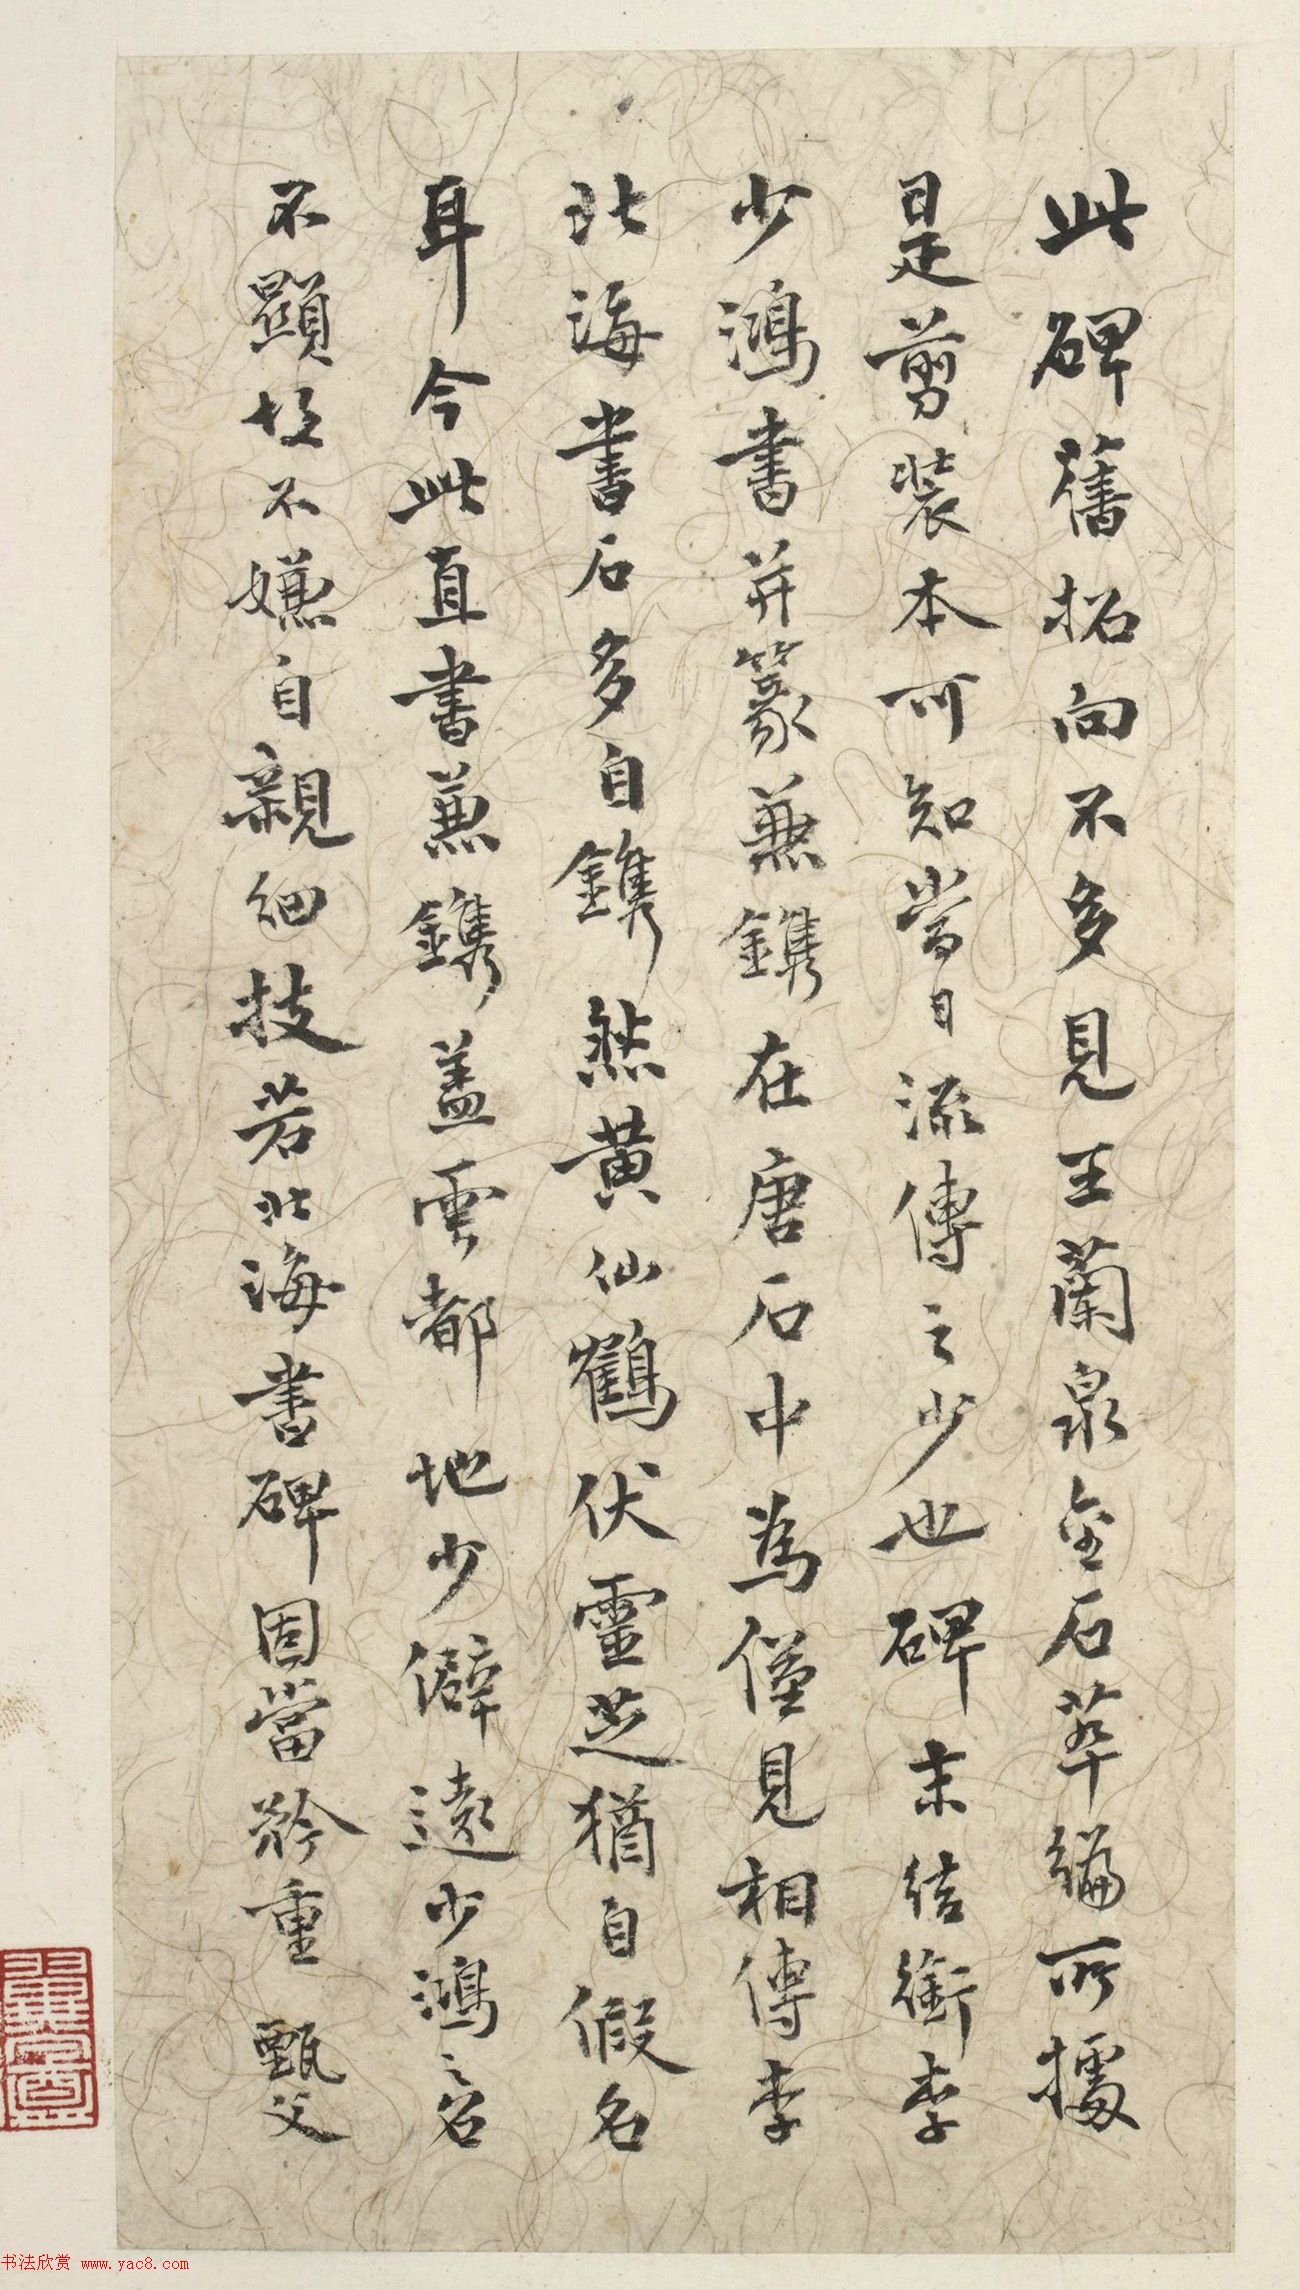 此碑舊拓向不多見王蘭泉金石萃編所據
是剪裝本可知當日流傳之少也碑末結銜李
少鴻書并篆兼鐫在唐石中為僅見相傳李
北海書石多自鐫然黃仙鶴伏靈芝猶自假名
耳今此直書兼鐫蓋雲都地少僻遠少鴻之名
不顯故不嫌自親細技若北海書碑固當矜重 甄父
书法欣赏 www.yac8.com